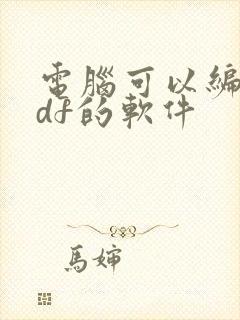 電腦可以編
df的軟件
馬嬸